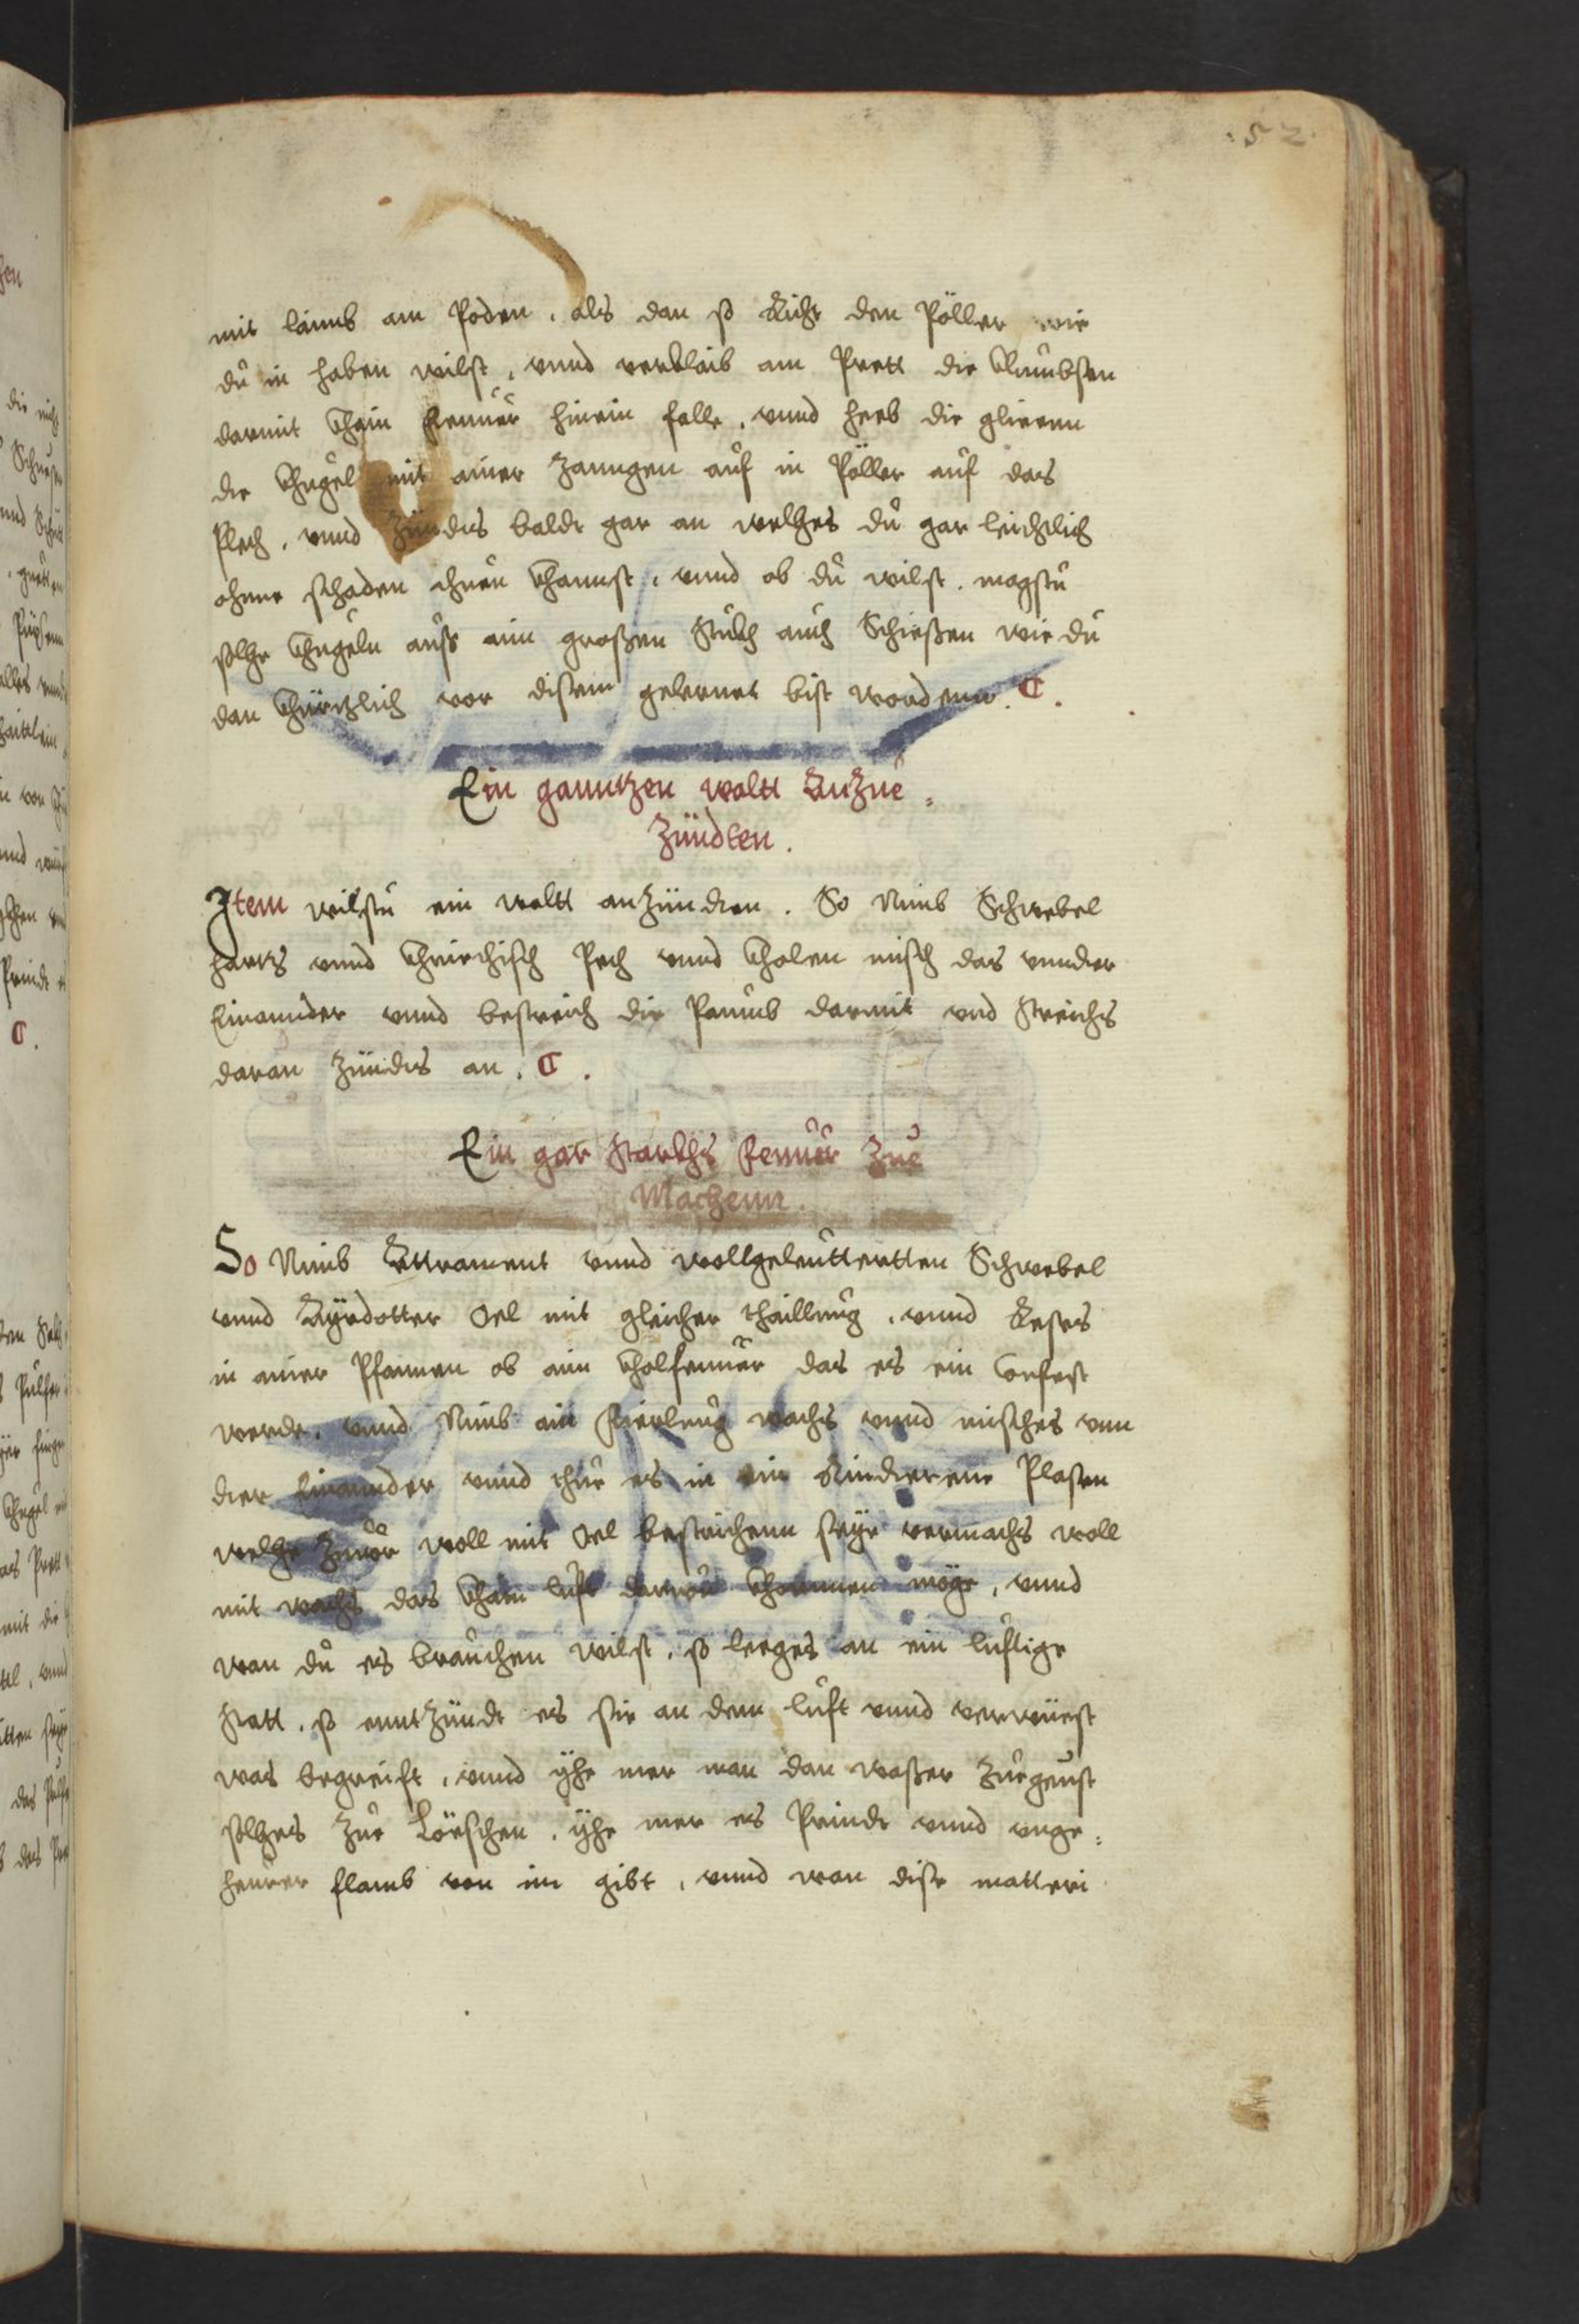 .52.
mit laimb am Poden, als dan so Richt den Pöller wie
du in haben wilst, vnnd verklaib am Prett die Klumbsen
darmit khain feuuer hinein falle, vnnd heb die glieenn
die khugel mit ainer Zanngen auf in Pöller auf das
Plech, vnnd Zündts baldt gar an welches du gar leichtlich
ohnne schaden thuen khannst, vnnd ob du wilst, magstu
solche khugeln auss aim grossen stuckh auch Schiessen wie du
dan khürtzlich vor disem gelernet bist wordenn.
Ein ganntzen waltt AnZue=
Zündten.
Item wilstu ein waltt anZündten. So Nimb Schwebel
Hartz vnnd khriechisch Pech vnnd kholen misch das vnnder
Einannder vnnd bestreich die Paumb darmit vnd streichs
daran Zündts an.
Ein gar starckhs feuuer Zue
Machenn.
So Nimb Attrament vnnd wollgeleutterten Schwebel
vnnd Ayrdotter Oel mit gleicher thaillung, vnnd Röstes
in ainer Pfannen ob aim kholfeuuer das es ein Confect
werde, vnnd Nimb ain vierleng wachs vnnd misches vnn
der Einannder vnnd thue es in ein Rinderene Plasen
welche Zuuor woll mit Oel bestrichenn seye vermachs woll
mit wachs das khain luft darzue khommen möge, vnnd
wan du es brauchen wilst, so leeges an ein luftige
statt, so enntZündt es sie an dem luft vnnd verwüest
was begreift, vnnd yhe mer man dan wasser Zuegeust
solches Zue Löeschen, yhe mer es Prindt vnnd vnge=
heurer flamb von im gibt, vnnd wan dise matteri